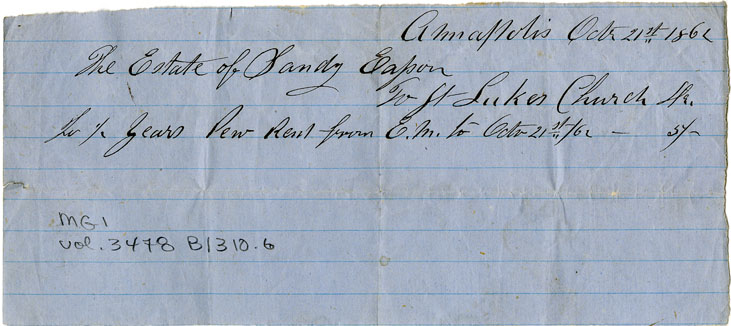 Annapolis Octr 21st 1862
The Estate of Sandy Eason
To St Lukes Church Dr.
To ½ Years Pew Rent from E.M. to Octr 21st /62 — 5/-
MG1
vol. 3478 B1310.6